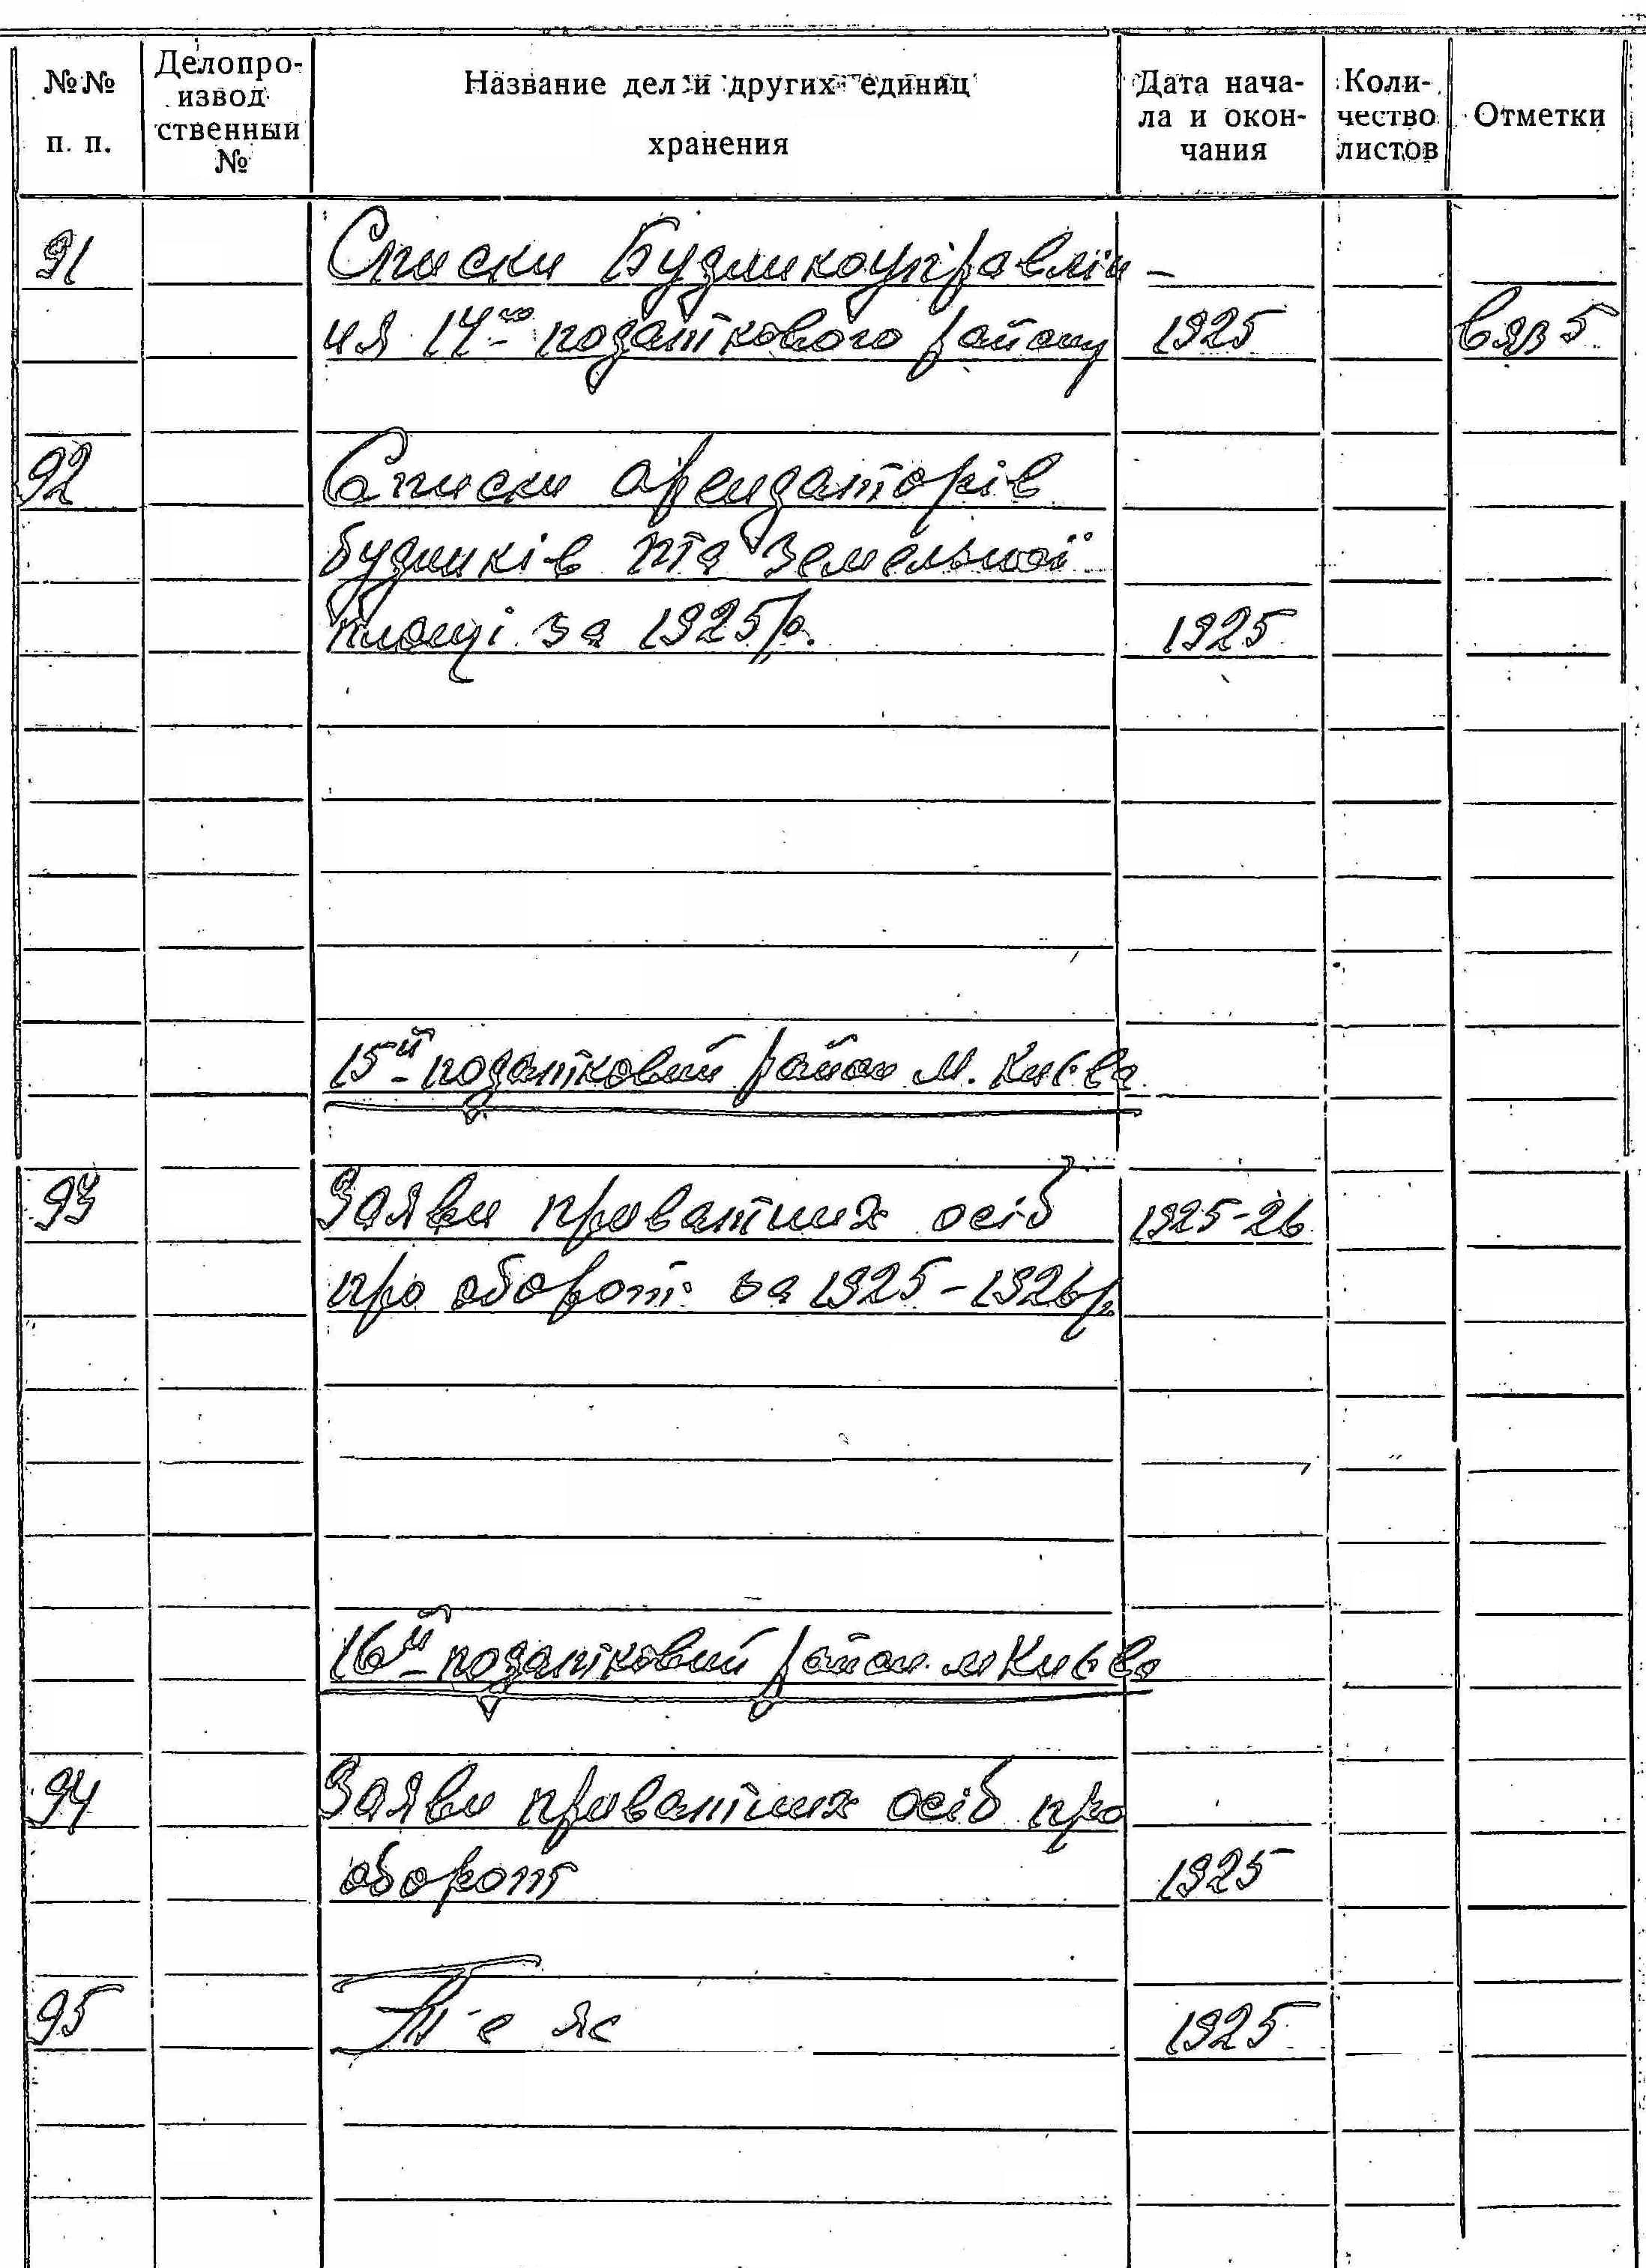 №№ п. п.
Делопро-
извод
ственный
№
Название дел и других единиц
хранения
Дата нача-
ла и окон-
чания
Коли-
чество
листов
Отметки
91 Списки Будинкоуправлін-
ня 14го податкового району 1925 Вяз 5
92 Списки арендаторів
будинків та земельної
площі за 1925р. 1925
15й податковий район м. Києва
93 Заяви приватних осіб 1925-26
про оборот за 1925-1926р.
16й податковий район м Києва
94 Заяви приватних осіб про
оборот 1925
95 Т-е ж 1925